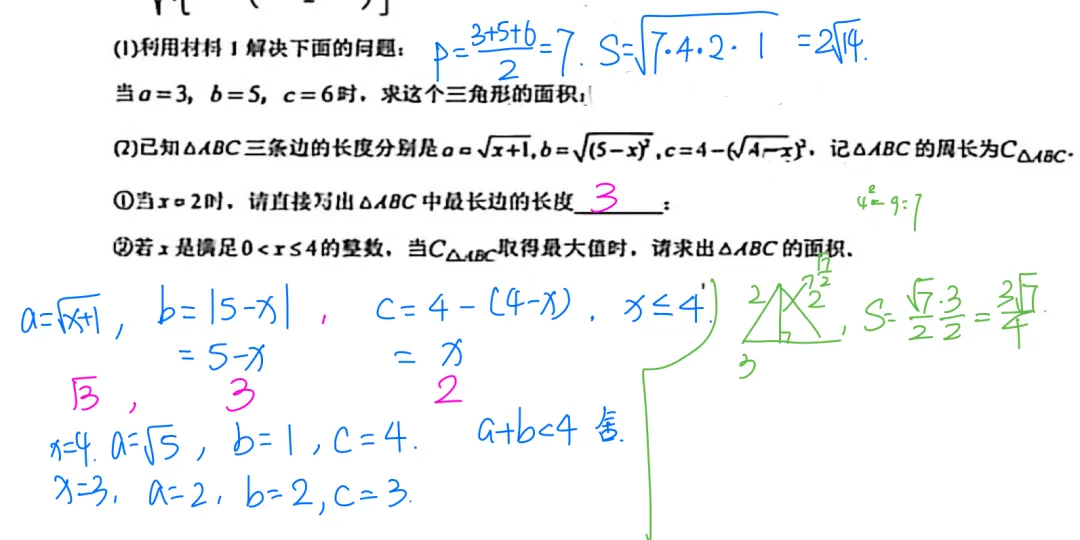 (1)利用材料1解决下面的问题： P=\frac{3+5+6}{2}=7. S=\sqrt{7·4·2·1}=2\sqrt{14}.
当a=3，b=5，c=6时，求这个三角形的面积；
(2)已知△ABC三条边的长度分别是a=\sqrt{x+1},b=\sqrt{(5-x)²},c=4-(\sqrt{4-x})²，记△ABC的周长为C△ABC.
①当x=2时，请直接写出△ABC中最长边的长度 3 ；
4²-9=7
②若x是满足0<x≤4的整数，当C△ABC取得最大值时，请求出△ABC的面积.
a=\sqrt{x+1}, b=|5-x|, c=4-(4-x). x≤4.
=5-x =x
\sqrt{3}, 3 2
x=4. a=\sqrt{5}, b=1, c=4. a+b<4 舍.
x=3. a=2. b=2, c=3.
2 2 \frac{\sqrt{7}}{2} 3, S=\frac{\sqrt{7}}{2}·\frac{3}{2}=\frac{3\sqrt{7}}{4}.